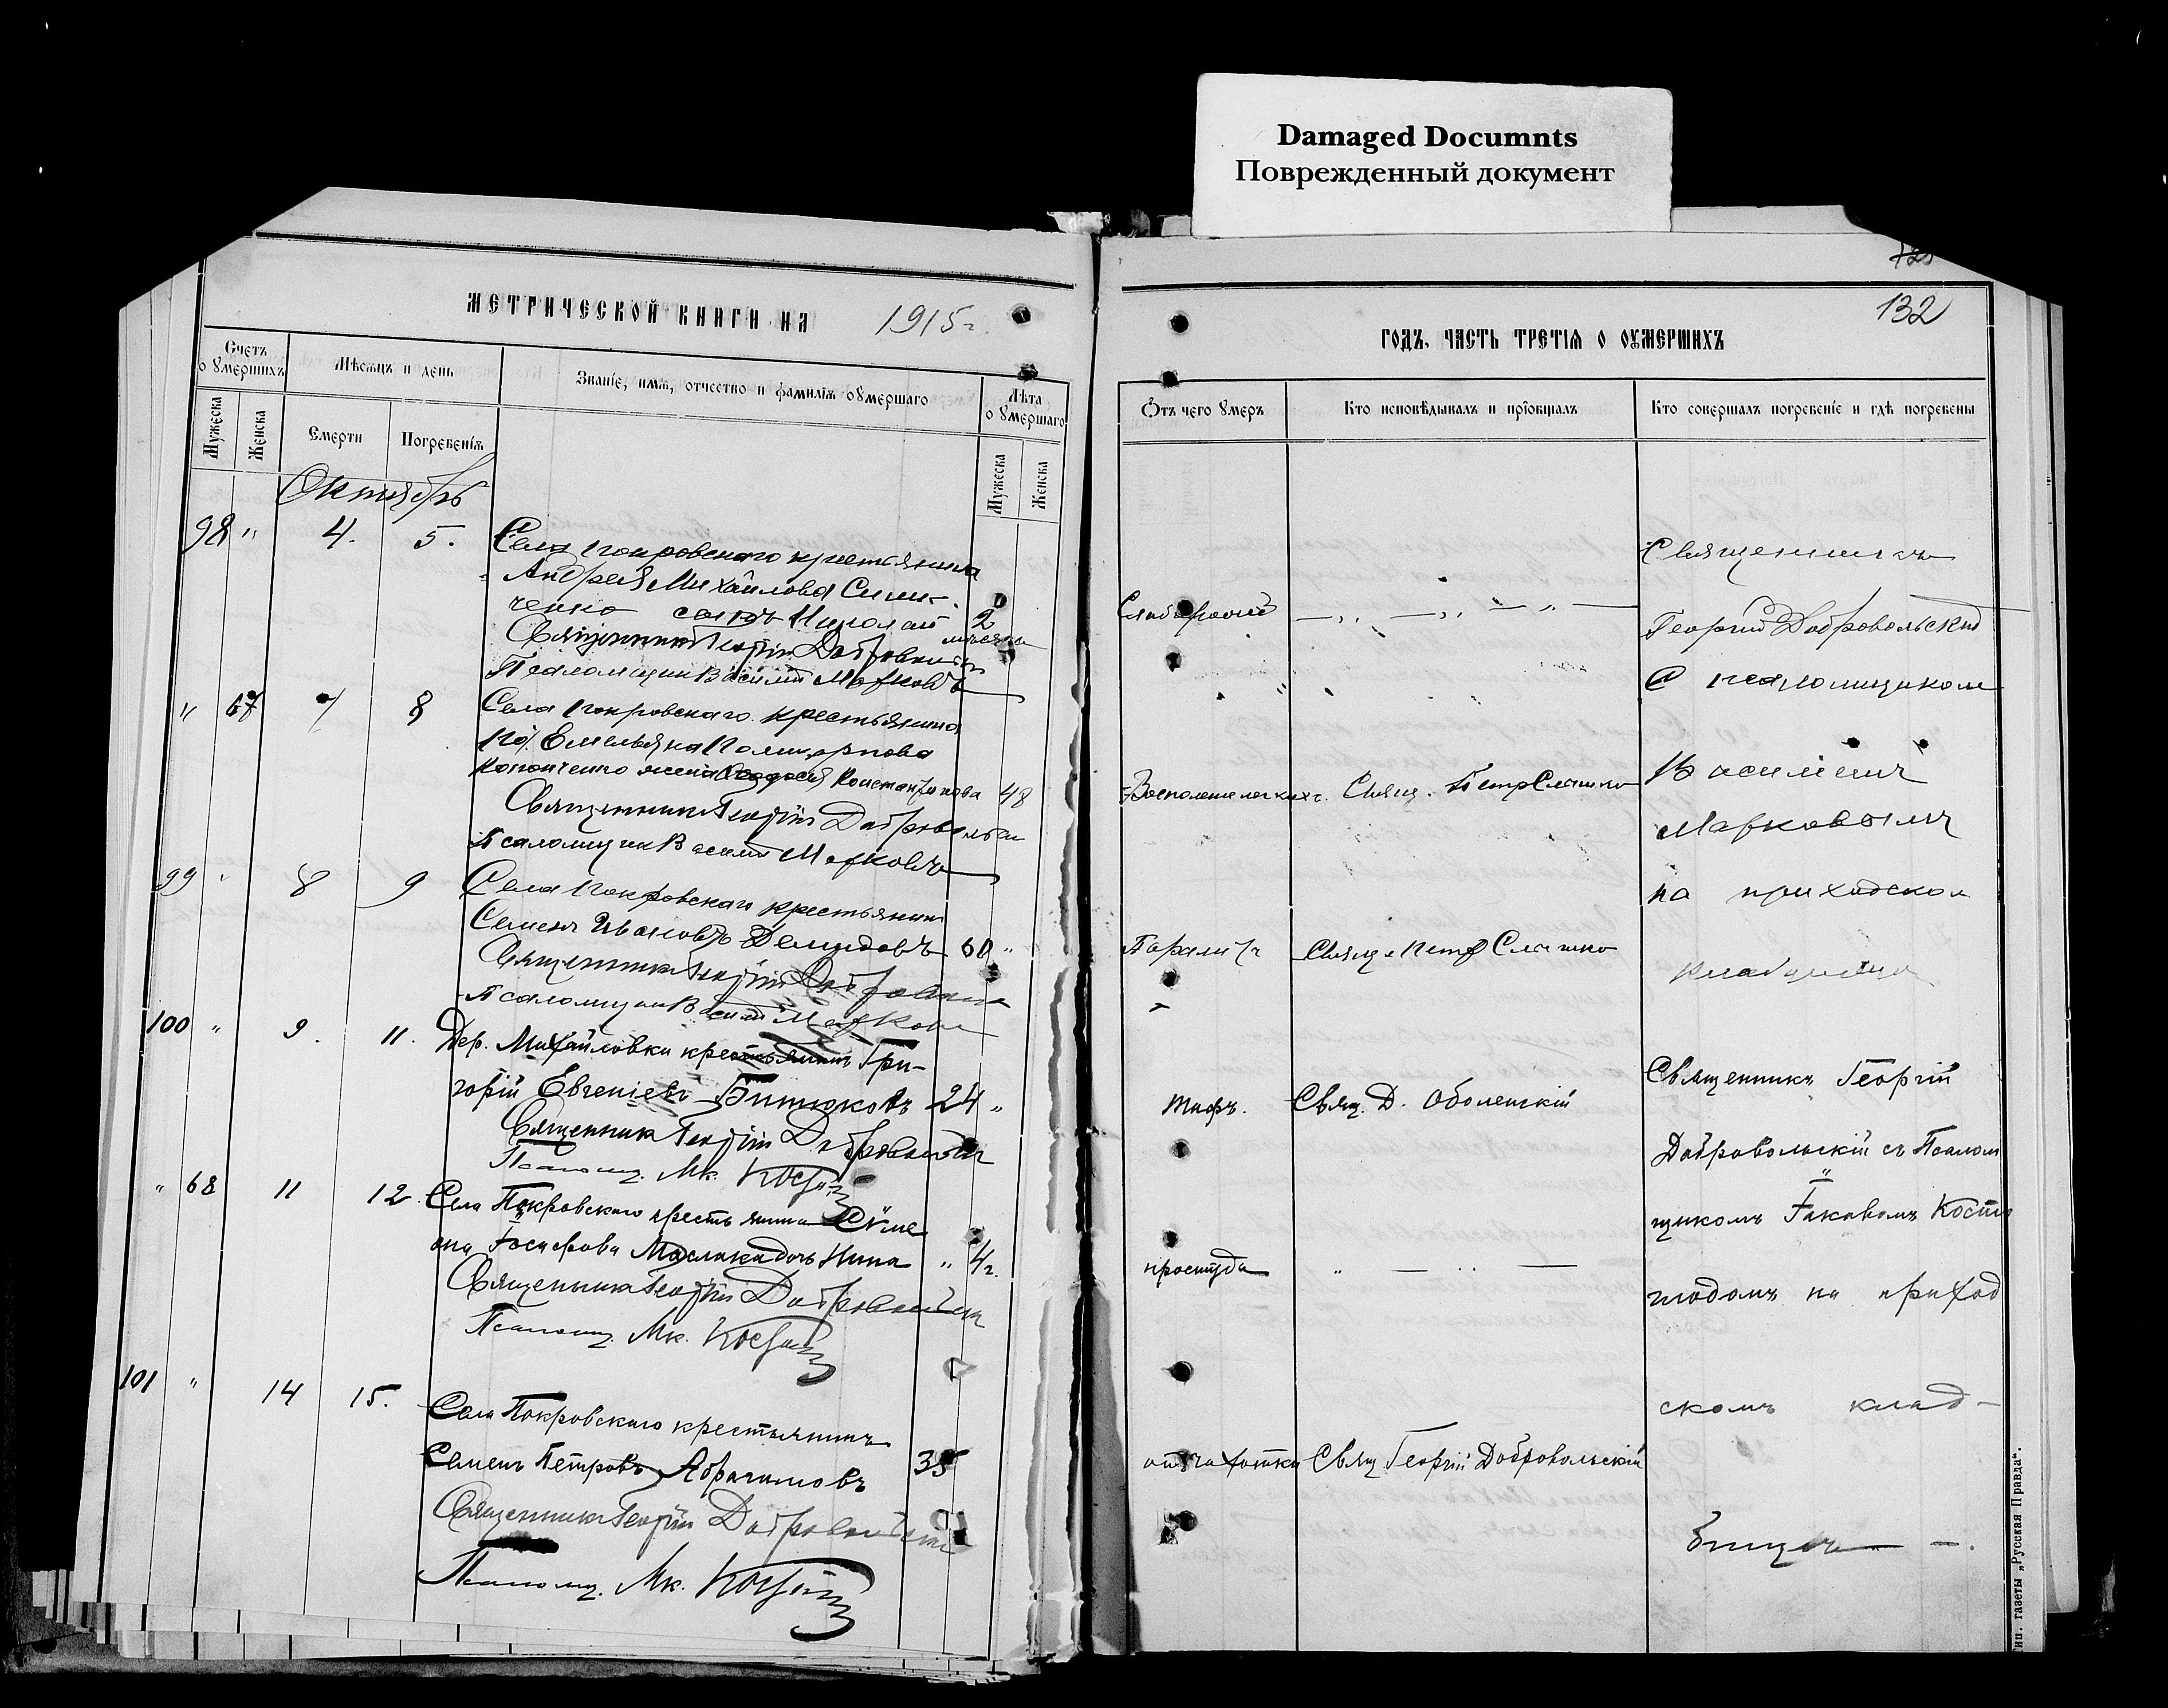 Damaged Documnts
Поврежденный документ
МЕТРИЧЕСКОЙ КНИГИ НА 1915 г.
Счетъ о умершихъ
Мѣсяцъ и день
Званіе, имя, отчество и фамилія умершаго
Лѣта умершаго
Мужеска
Женска
Смерти
Погребенія
Мужеска
Женска
Октябрь
98 " 4. 5. Села Покровскаго крестьянина
Андрея Михайлова Симч-
ченко сынъ Николай 2
мѣсяца
Священникъ Георгій Добровольскій
Псаломщикъ Василій Марковъ
" 67 7 8 Села Покровскаго крестьянина
Емельяна Поликарпова
Кононченко жена Феодосія Константинова 48
Священникъ Георгій Добровольскій
Псаломщикъ Василій Марковъ
99 " 8 9 Села Покровскаго крестьянинъ
Семенъ Ивановъ Демидовъ 60 "
Священникъ Георгій Добровольскій
Псаломщикъ Василій Марковъ
100 " 9. 11. Дер. Михайловки крестьянинъ Гри-
горій Евгеніевъ Битюковъ 24 "
Священникъ Георгій Добровольскій
Псаломщ. Як.
" 68 11 12. Села Покровскаго крестьянина Сѵме
она Іосифова Маслика дочь Нина " 4 г.
Священникъ Георгій Добровольскій
Псаломщ. Як.
101 " 14 15. Села Покровскаго крестьянинъ
Семенъ Петровъ Абрагамовъ 35
Священникъ Георгій Добровольскій
Псаломщ. Як.
132
ГОДЪ, ЧАСТЬ ТРЕТІЯ О ОУМЕРШИХЪ
Отъ чего умеръ
Кто исповѣдывалъ и пріобщалъ
Кто совершалъ погребеніе и гдѣ погребены
Священникъ
Георгій Добровольскій
с псаломщикомъ
Василіемъ
Марковымъ
на приходском
кладбище
Воспаленіе легкихъ. Свящ. Петръ Слашко
Параличъ Свящ. Петръ Слашко
Тифъ. Свящ. Д. Оболенскій
Священникъ Георгій
Добровольскій съ Псалом
щикомъ Іаковомъ Костю
на приход
скомъ клад-
бищѣ —.
простуда " — " —
отъ чахотки Свящ Георгій Добровольскій
Тип. газеты „Русская Правда“.